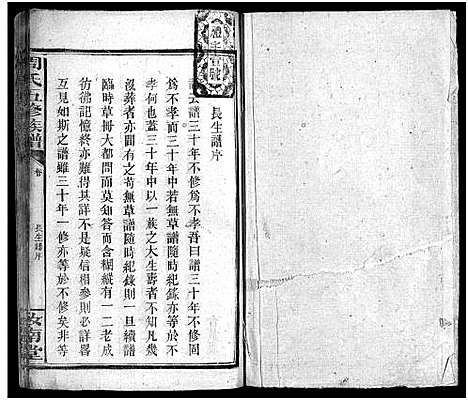 禮字壹號
長生譜序
語云譜三十年不修為不孝吾曰譜三十年不修固
為不孝而三十年中若無草譜隨時紀錄亦等於不
孝何也蓋三十年中以一族之大生壽者不知凡幾
沒葬者亦間有之苟無草譜隨時紀錄則一旦續譜
臨時草冊大都問而莫知答而含糊縱有一二老成
彷彿記憶終亦難得其詳不是疑信相參則必詳畧
互見如斯之譜雖三十年一修亦等於不修矣非等
周氏五修族譜
卷
長生譜序
汝南堂